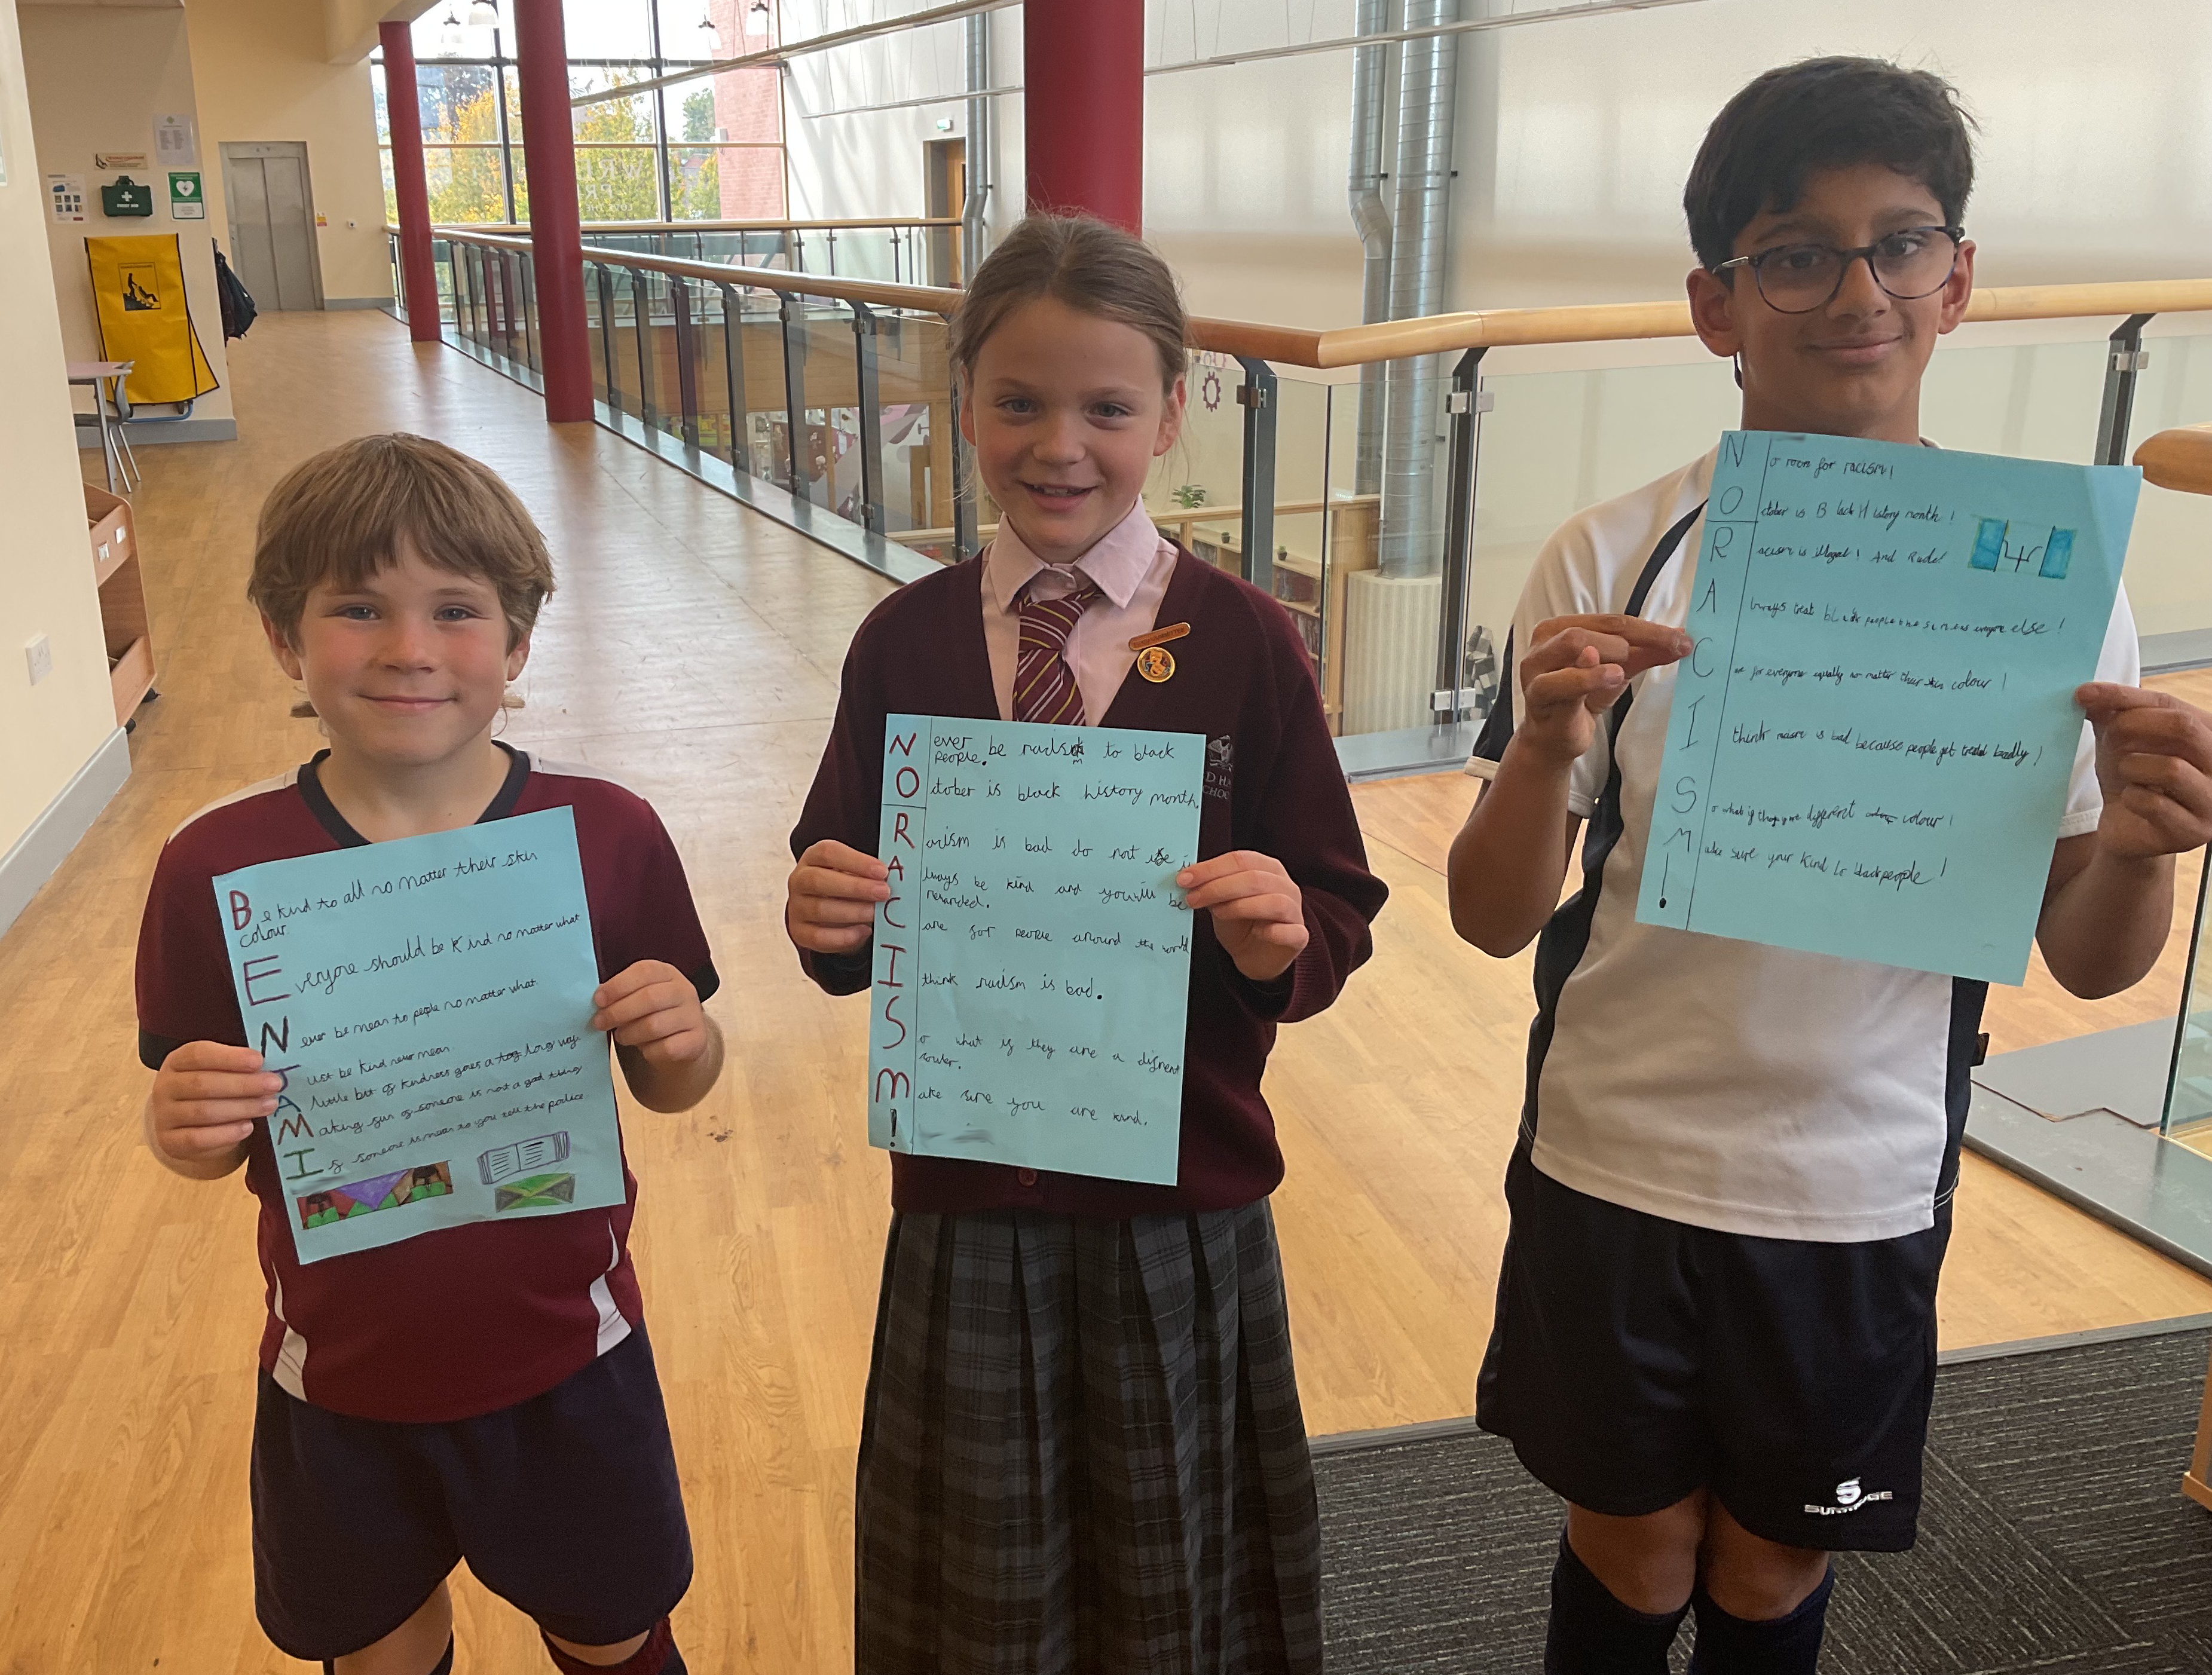 Be kind to all no matter their skin
colour.
Everyone should be kind no matter what
Never be mean to people no matter what.
Just be kind never mean.
A little bit of kindness goes a long way.
Making fun of someone is not a good thing
If someone is mean to you tell the police.
Never be racism to black
people.
October is black history month.
Racism is bad do not use it
Always be kind and you will be
rewarded.
Care for people around the world
I think racism is bad.
So what if they are a
Make sure you are kind.
!
No room for racism!
October is Black History month!
Racism is illegal! And Rude!
Always treat black people the same as everyone else!
Care for everyone equally no matter their skin colour!
I think racism is bad because people get treated badly!
So what if they're different colour!
Make sure your kind to black people!
!
FIRST AID
SURRIDGE